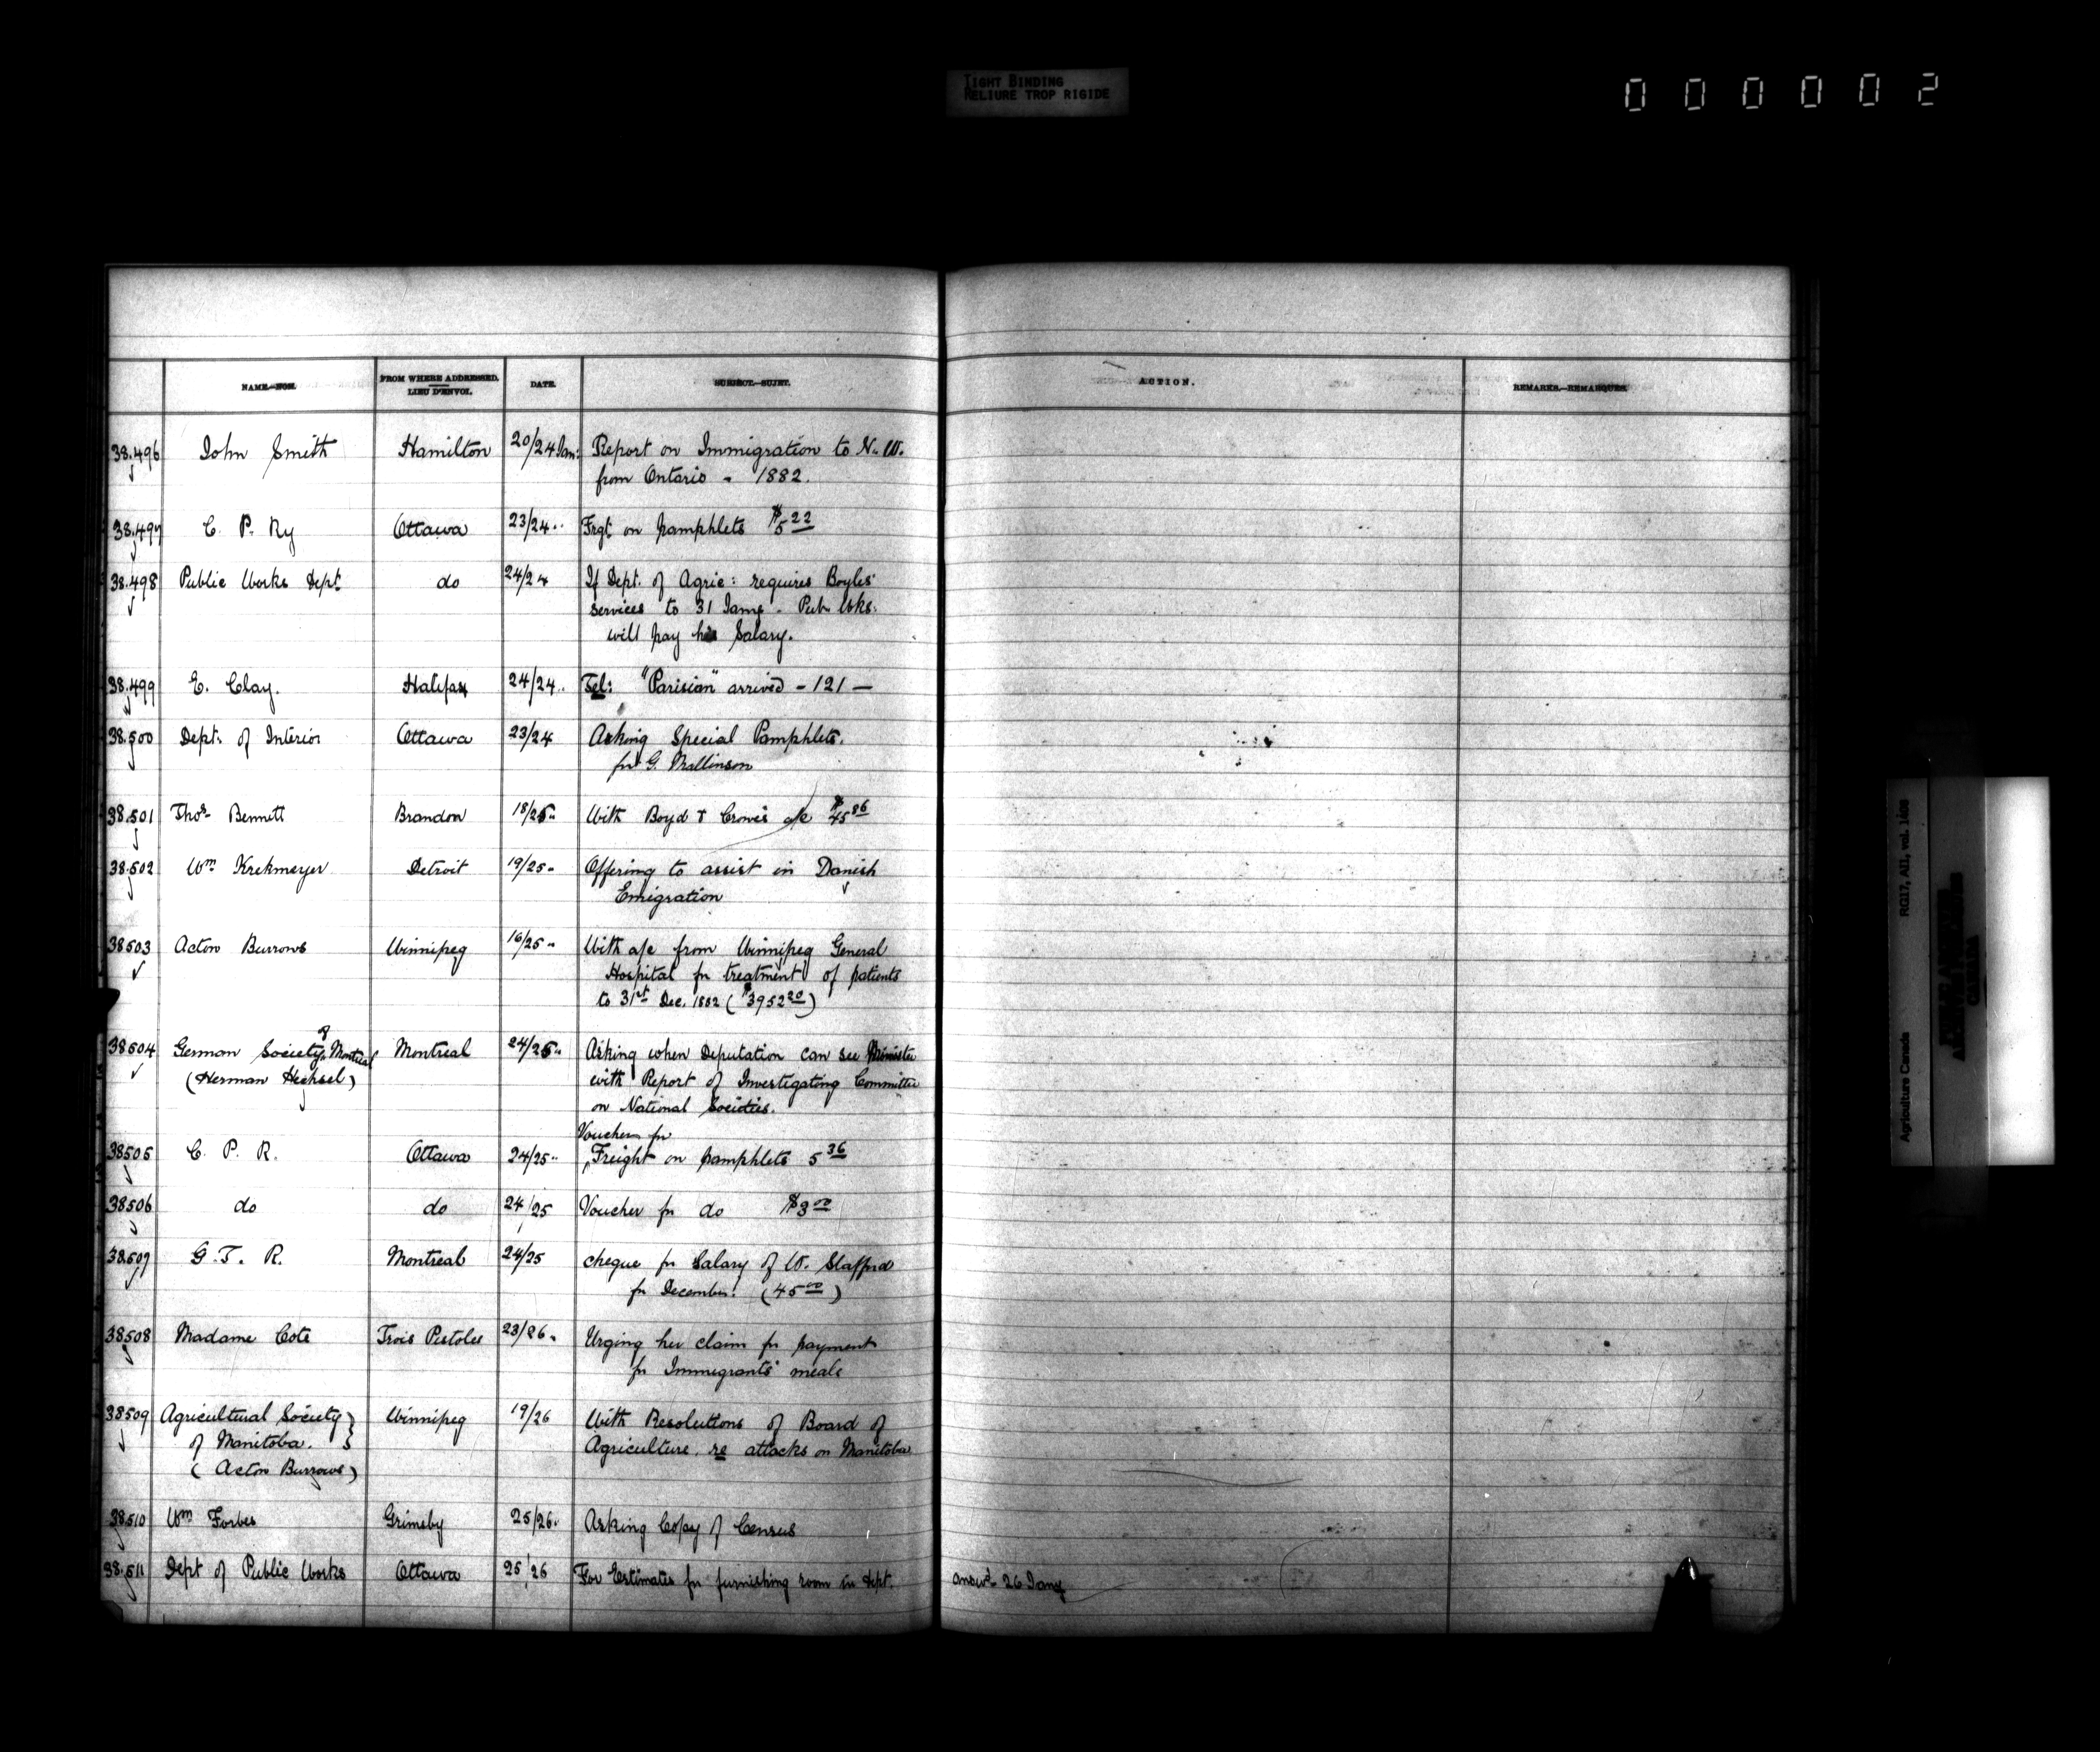 TIGHT BINDING
RELIURE TROP RIGIDE
000002
NAME.—NOM.
FROM WHERE ADDRESSED.
LIEU D'ENVOI.
DATE.
SUBJECT.—SUJET.
ACTION.
REMARKS.—REMARQUES.
38.496 John Smith Hamilton 20/24 Jan: Report on Immigration to N. W.
from Ontario - 1882.
38.497 C. P. Ry Ottawa 23/24 .. Frgt on pamphlets $5 22
38.498 Public Works Dept do 24/24 If Dept. of Agric: requires Boyles'
services to 31 Jany - Pub Wks.
will pay his Salary.
38.499 E. Clay. Halifax 24/24 .. Tel: "Parisian" arrived - 121 —
38.500 Dept. of Interior Ottawa 23/24 Asking Special Pamphlets.
for G. Mallinson
38.501 Thos. Bennett Brandon 18/25 .. With Boyd & Crowe's a/c $45 86
38.502 Wm Krekmeyer Detroit 19/25 .. Offering to assist in Danish
Emigration
38503 Acton Burrows Winnipeg 16/25 .. With a/c from Winnipeg General
Hospital for treatment of patients
to 31st Dec. 1882 ( $3952 20 )
38504 German Society of Montreal Montreal 24/25 .. Asking when Deputation can see Minister
(Herman Hechsel) with Report of Investigating Committee
on National Societies.
Voucher for
38505 C. P. R. Ottawa 24/25 .. Freight on pamphlets 5 36
38506 do do 24/25 Voucher for do $3 00
38.507 G. T. R. Montreal 24/25 cheque for Salary of W. Stafford
for December. (45 00)
38508 Madame Cote Trois Pistoles 23/26 .. Urging her claim for payment
for Immigrants' meals
38509 Agricultural Society Winnipeg 19/26 With Resolutions of Board of
of Manitoba. Agriculture. re attacks on Manitoba
( Acton Burrows )
38.510 Wm Forbes Grimsby 25/26. Asking Copy of Census
38.511 Dept of Public Works Ottawa 25/26 For Estimates for furnishing room in dept. answd 26 Jany
Agriculture Canada RG17, AII1, vol.